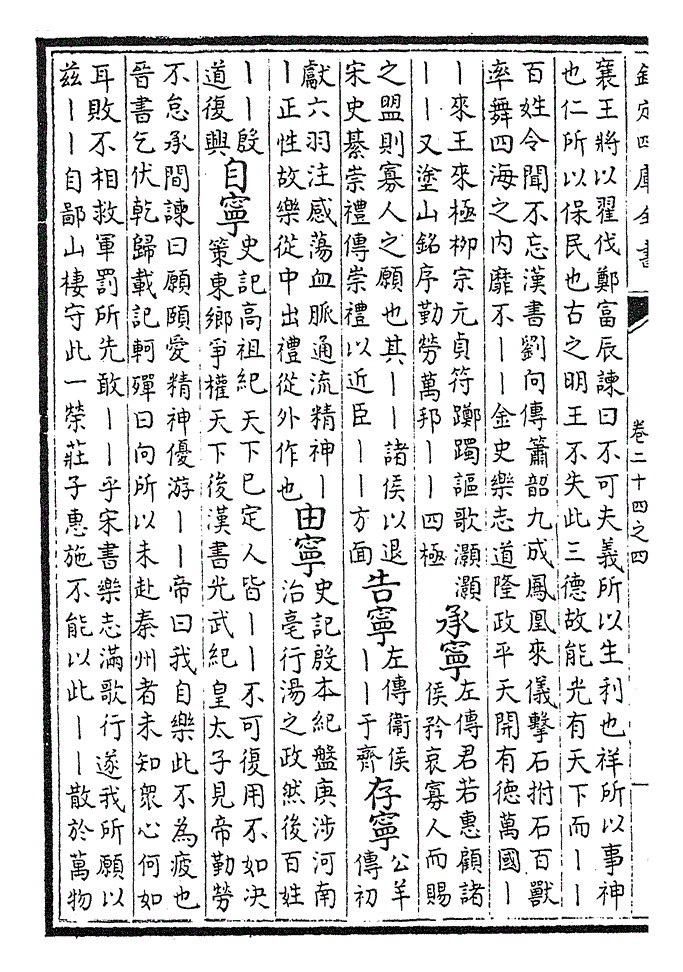 欽定四庫全書
卷二十四之四
襄王將以翟伐鄭富辰諫曰不可夫義所以生利也祥所以事神
也仁所以保民也古之明王不失此三德故能光有天下而丨丨
百姓令聞不忘漢書劉向傳簫韶九成鳳凰來儀擊石拊石百獸
率舞四海之內靡不丨丨金史樂志道隆政平天開有德萬國丨
丨來王來極柳宗元貞符躑躅謳歌灝灝
丨丨又塗山銘序勤勞萬邦丨丨四極
承寧
左傳君若惠顧諸
侯矜哀寡人而賜
之盟則寡人之願也其丨丨諸侯以退
宋史綦崇禮傳崇禮以近臣丨丨方面
告寧
左傳衞侯
丨丨于齊
存寧
公羊
傳初
獻六羽注感蕩血脈通流精神丨
丨正性故樂從中出禮從外作也
由寧
史記殷本紀盤庚涉河南
治亳行湯之政然後百姓
丨丨殷
道復興
自寧
史記高祖紀天下已定人皆丨丨不可復用不如决
策東鄉爭權天下後漢書光武紀皇太子見帝勤勞
不怠承間諫曰願頤愛精神優游丨丨帝曰我自樂此不為疲也
晉書乞伏乾歸載記軻殫曰向所以未赴秦州者未知眾心何如
耳敗不相救軍罰所先敢丨丨乎宋書樂志滿歌行遂我所願以
兹丨丨自鄙山棲守此一榮莊子惠施不能以此丨丨散於萬物